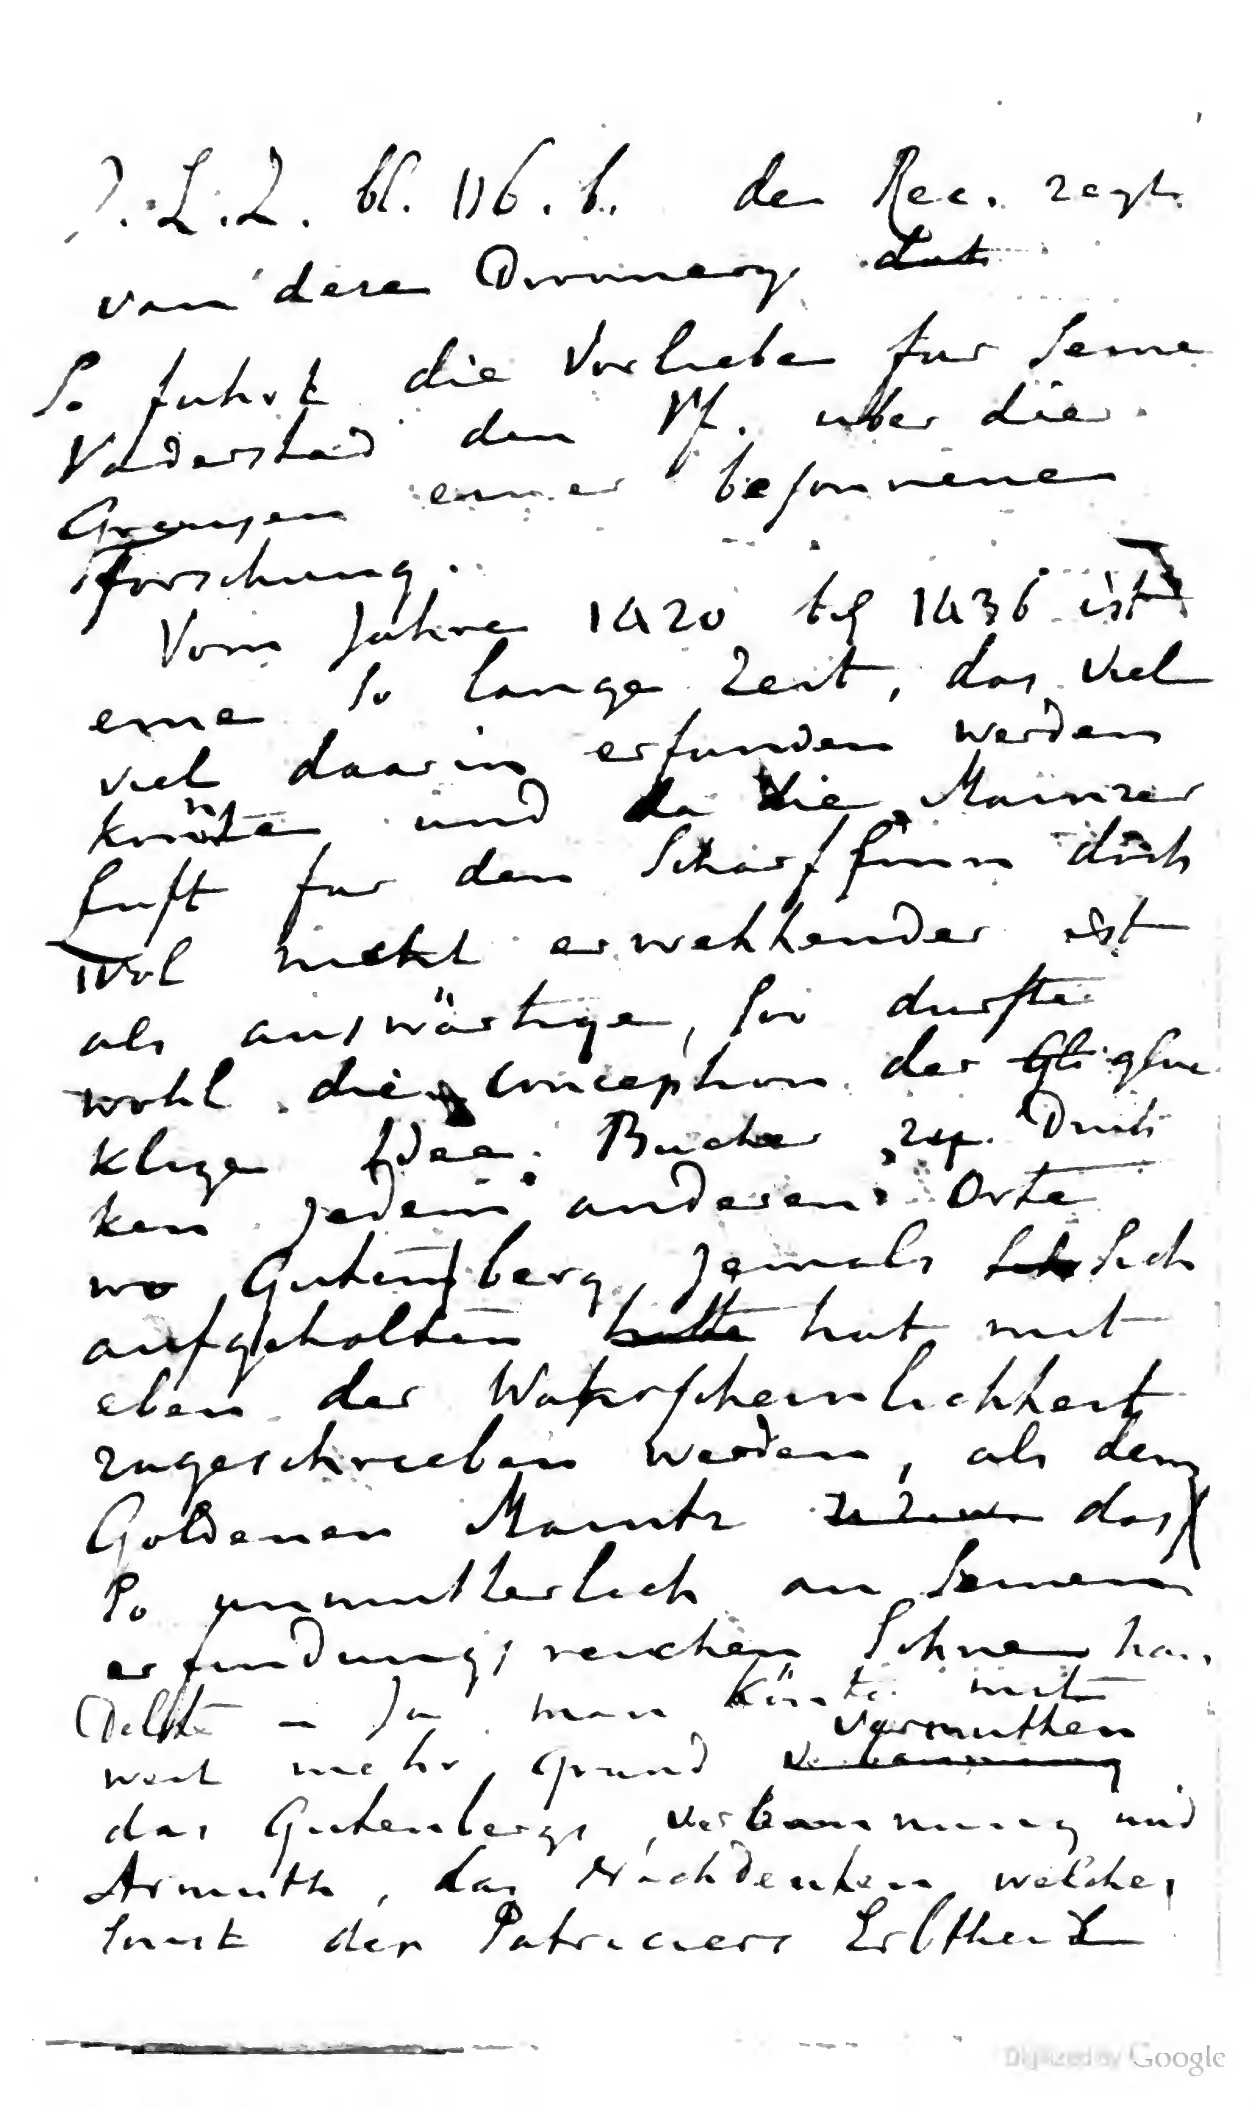 J.L.Z. bl. 116. b. de Rec. zegt
van deze Drukkery. dat
So fuhrt die Vorliebe fur Seine
Vaderstad den Vf. uber die
Grenzen einer besonnenen
forschung.
Vom Jahre 1420 bis 1436 ist
eine so lange Zeit, das viel
viel daarin erfunden werden
konnte und da die Mainzer
luft fur den Scharfsinn doch
wol nicht erwekkender ist
als auswärtige, so durfte
wohl die Conception der Gli glu
klige Idee Bucher zu Druk
ken jedem anderen Orte
wo Gutenberg jemals sich sich
aufgehalten hatte hat mit
eben der Wahrscheinlichkeit
zugeschrieben werden, als dem
Goldenen Maintz das
so unmutterlich an Seinem
erfindungsreichen Sohne han
delte - Ja man könte mit
vermuthen
weit mehr grund verbannung
das Gutenbergs verbannung und
Armuth, das Nachdenken welches
sonst der Patriciers Erbtheil
Digitized by Google